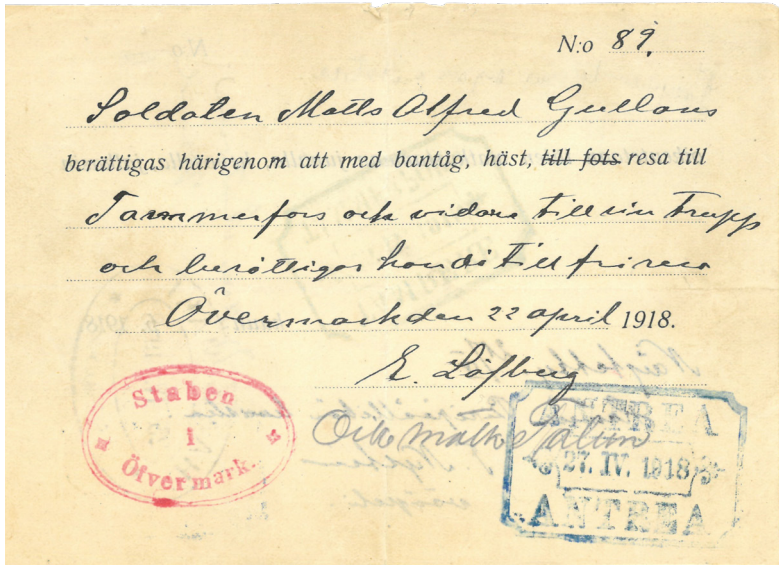 N:o 89.
Soldaten Matts Alfred Gullans
berättigas härigenom att med bantåg, häst, till fots resa till
Tammerfors och vidare till sin trupp
och berättigas handå till fri resa
Övermark den 22 april 1918.
E. Löfberg
Staben
i
Öfvermark.
ANTREA
27. IV. 1918
ANTREA